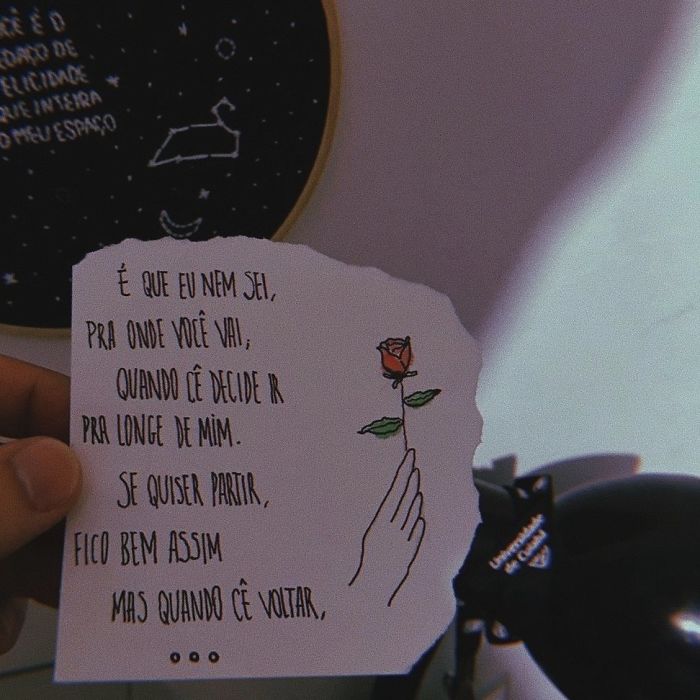 CÊ É O
EDAÇO DE
ELICIDADE
QUE INTEIRA
O MEU ESPAÇO
É QUE EU NEM SEI,
PRA ONDE VOCÊ VAI,
QUANDO CÊ DECIDE IR
PRA LONGE DE MIM.
SE QUISER PARTIR,
FICO BEM ASSIM
MAS QUANDO CÊ VOLTAR,
...
Universidade
de Cuiabá